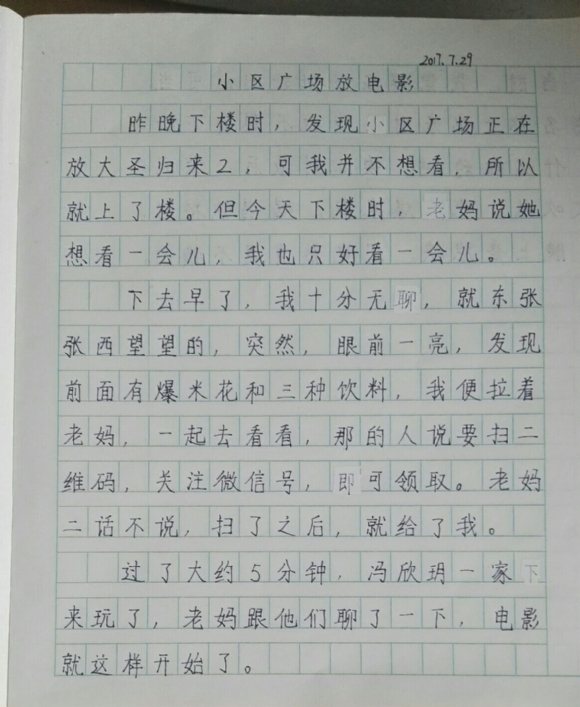 2017.7.29
小区广场放电影
昨晚下楼时，发现小区广场正在
放大圣归来2，可我并不想看，所以
就上了楼。但今天下楼时，老妈说她
想看一会儿，我也只好看一会儿。
下去早了，我十分无聊，就东张
张西望望的，突然，眼前一亮，发现
前面有爆米花和三种饮料，我便拉着
老妈，一起去看看，那的人说要扫二
维码，关注微信号，即可领取。老妈
二话不说，扫了之后，就给了我。
过了大约5分钟，冯欣玥一家下
来玩了，老妈跟他们聊了一下，电影
就这样开始了。